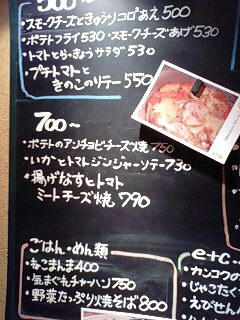 500〜
・スモークチーズときゅうりコロコロあえ 500
・ポテトフライ 530 ・スモークチーズあげ 530
・トマトとらっきょうサラダ 530
・プチトマトと
きのこのソテー 550
700〜
・ポテトのアンチョビチーズ焼 750
・いかとトマトジンジャーソテー 730
・揚げなすとトマト
ミートチーズ焼 790
ごはん・めん類
・ねこまんま 400
・気まぐれチャーハン 750
・野菜たっぷり焼そば 800
e+c...
・カンコクの
・じゃこたく
・えびせん